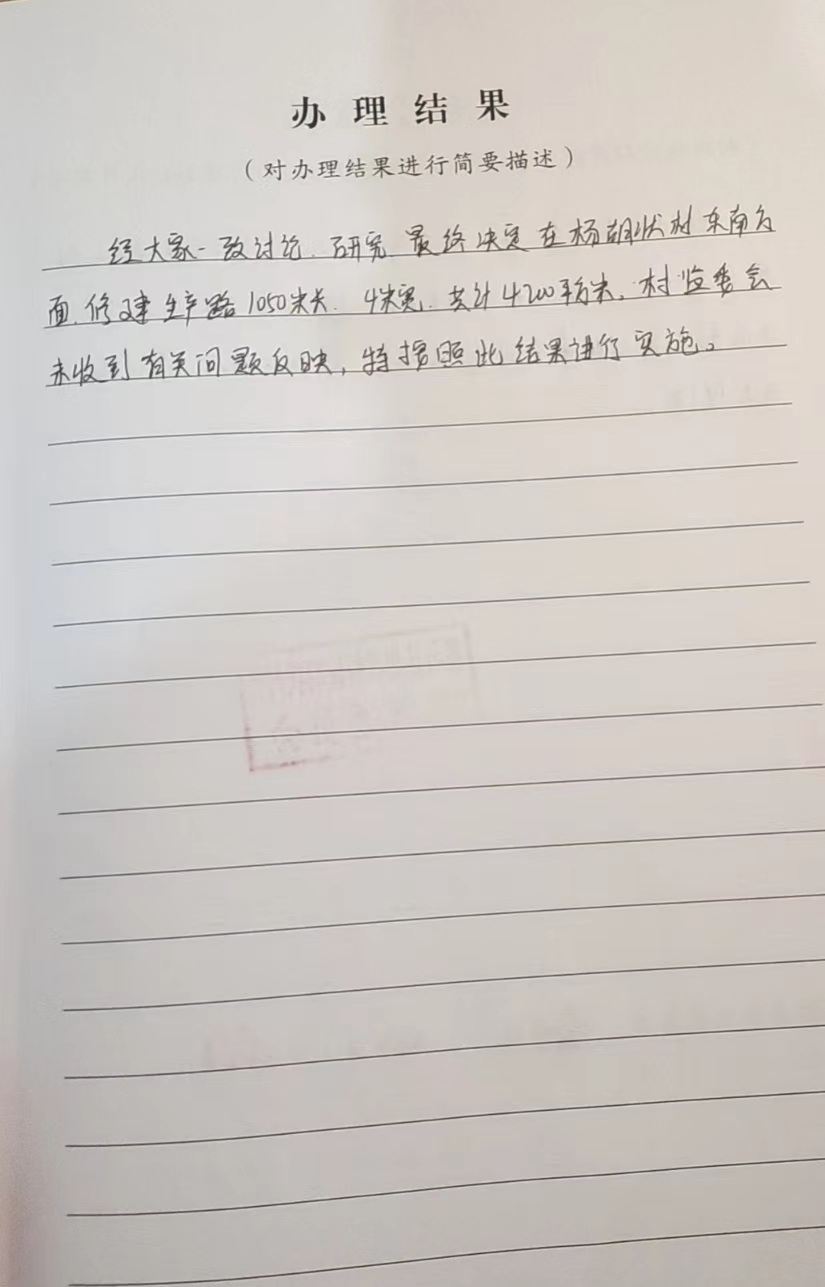 办理结果
（对办理结果进行简要描述）
经大家一致讨论、研究、最终决定在杨胡状村东南方
面、修建生产路1050米长、4米宽、共计4200平方米。村监委会
未收到有关问题反映，特按照此结果进行实施。